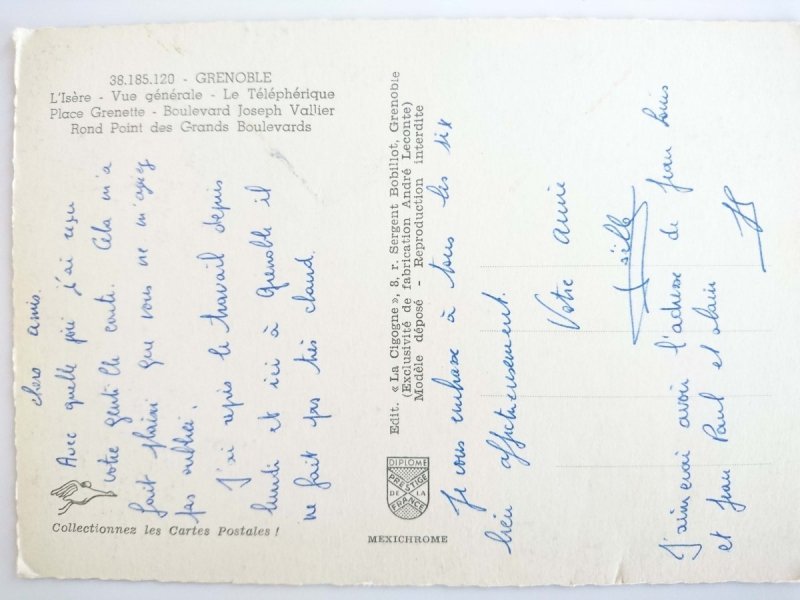 38.185.120 - GRENOBLE
L'Isère - Vue générale - Le Téléphérique
Place Grenette - Boulevard Joseph Vallier
Rond Point des Grands Boulevards
chers amis.
Avec quelle joie j'ai reçu
votre gentille carte. Cela m'a
fait plaisir que vous ne m'ayez
pas oubliée.
J'ai repris le travail depuis
lundi et ici à Grenoble il
ne fait pas très chaud.
Collectionnez les Cartes Postales !
Edit. « La Cigogne », 8, r. Sergent Bobillot, Grenoble
(Exclusivité de fabrication André Leconte)
Modèle déposé - Reproduction interdite
DIPLOME
PRESTIGE
DE LA
FRANCE
MEXICHROME
Je vous embrasse à tous les six
bien affectueusement.
Votre amie
J'aimerai avoir l'adresse de Jean Louis
et Jean Paul et Alain